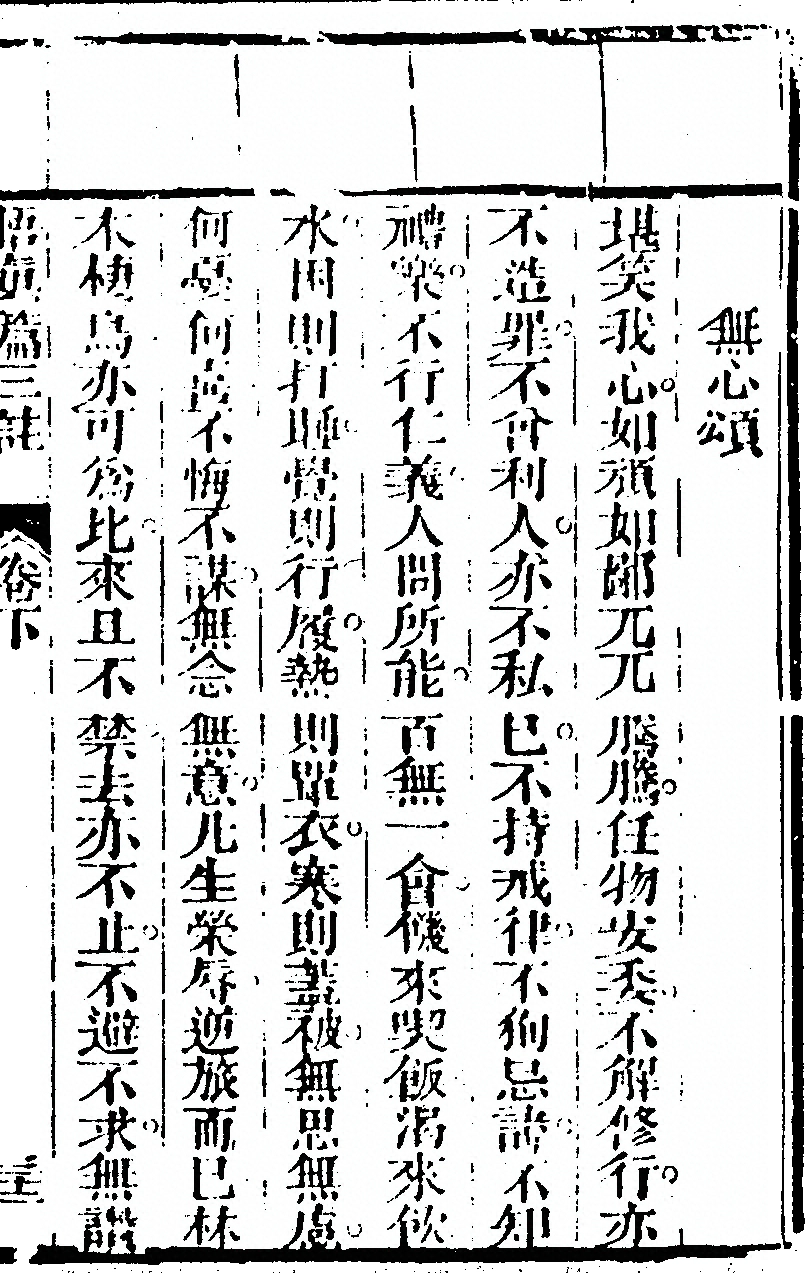 無心頌
堪笑我心如頑如鄙兀兀騰騰任物安委不解修行亦
不造罪不曾利人亦不私己不持戒律不狥忌諱不知
禮樂不行仁義人間所能百無一會饑來喫飯渴來飲
水困則打睡覺則行履熱則單衣寒則蓋被無思無慮
何憂何喜不悔不謀無念無意凡生榮辱逆旅而已林
木棲鳥亦可爲比來且不禁去亦不止不避不求無讚
悟真篇三註 卷下